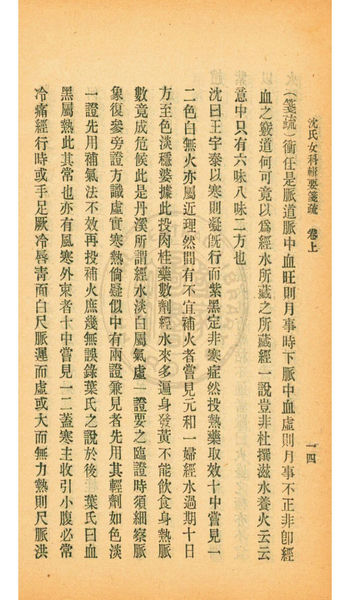 沈氏女科輯要箋疏 卷上
一四
（箋疏）衝任是脈道脈中血旺則月事時下脈中血虛則月事不正非卽經
血之竅道何可竟以爲經水所藏之所藏經一說豈非杜撰滋水養火云云
意中只有六味八味二方也
沈曰王宇泰以寒則凝旣行而紫黑定非寒症然投熱藥取效十中嘗見一
二色白無火亦屬近理然間有不宜補火者嘗見元和一婦經水過期十日
方至色淡穩婆據此投肉桂藥數劑經水來多遍身發黃不能飲食身熱脈
數竟成危候此是丹溪所謂經水淡白屬氣虛一證要之臨證時須細察脈
象復參旁證方識虛實寒熱倘疑似中有兩證兼見者先用其輕劑如色淡
一證先用補氣法不效再投補火庶幾無誤錄葉氏之說於後 葉氏曰血
黑屬熱此其常也亦有風寒外束者十中嘗見一二蓋寒主收引小腹必常
冷痛經行時或手足厥冷唇青面白尺脈遲而虛或大而無力熱則尺脈洪